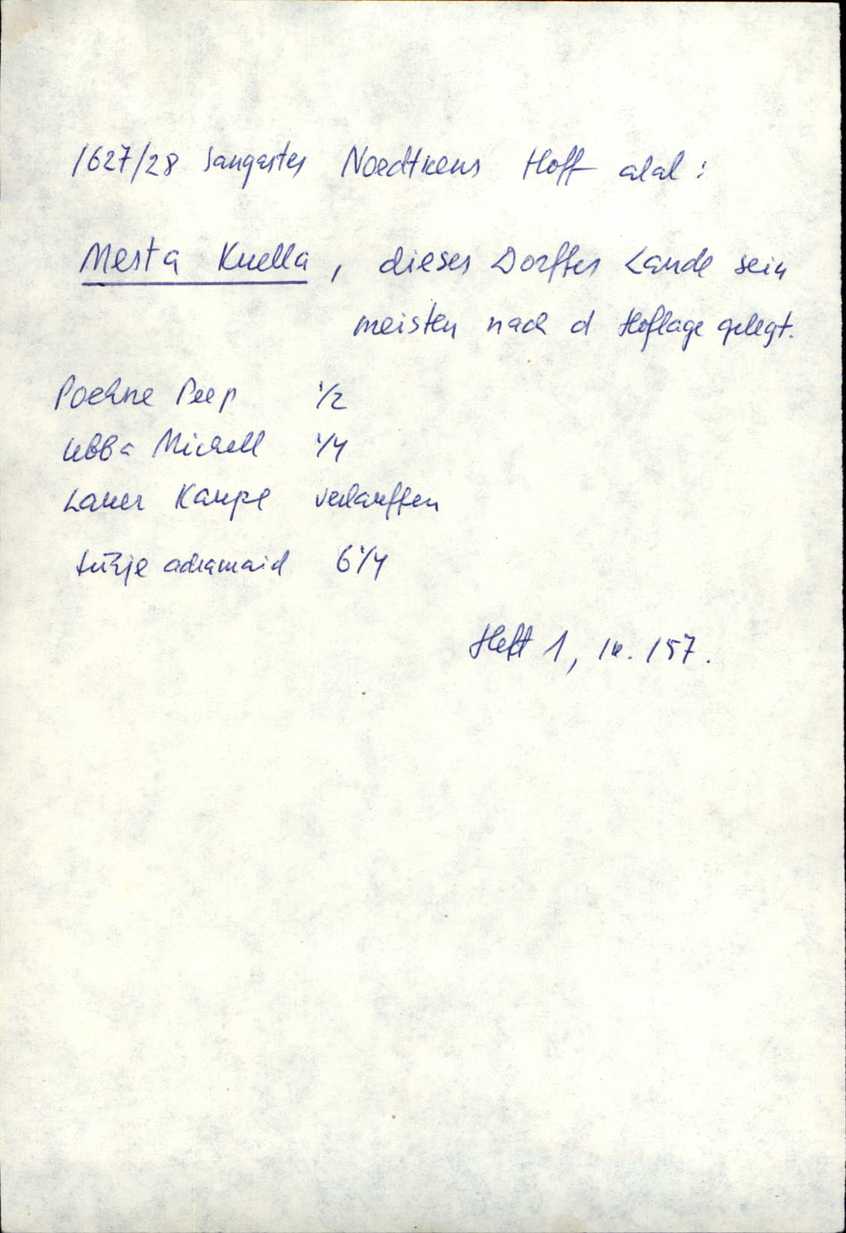 1627/28 Sangastes Noedtkens Hoff alal:
Mesta Kuella, dieses Dorffes Lande sein
meisten nach d Hoflage gelegt.
Poehne Peep 1/2
Ubba Michell 1/4
Lauer Kaupe verlauffen
tühje adramaid 6 1/4
Heft 1, lk. 157.